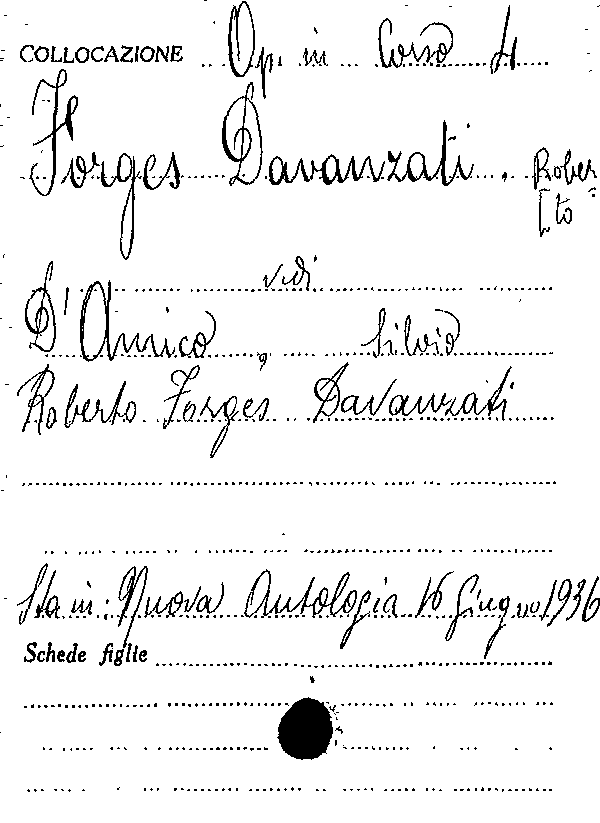 COLLOCAZIONE Op. in Corso 4
Forges Davanzati. Rober
[to
vedi
D'Amico, Silvio
Roberto Forges Davanzati
Sta in: Nuova Antologia 16 Giugno 1936
Schede figlie